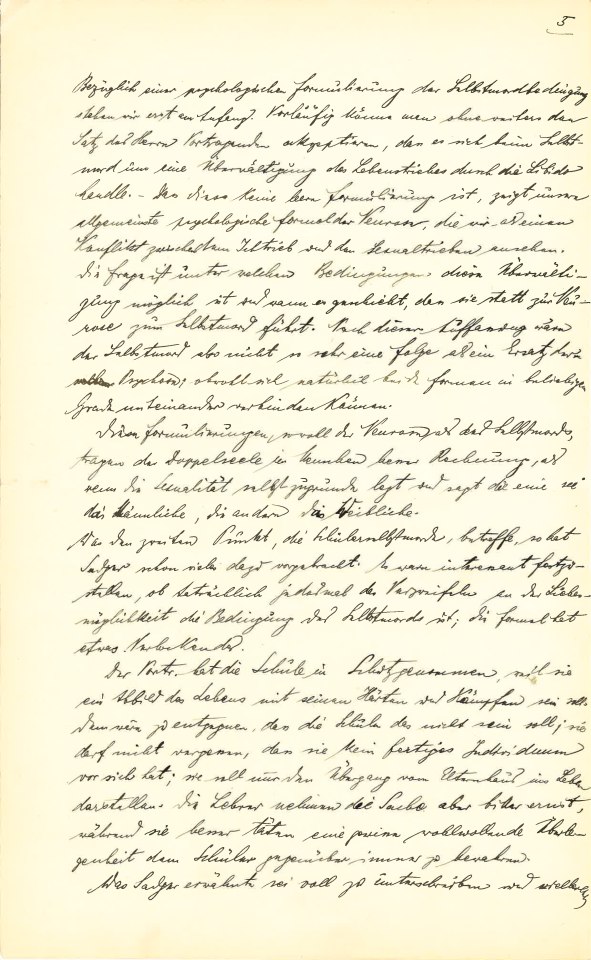 5
Bezüglich einer psychologischen Formulierung der Selbstmordbedingung
stehen wir erst am Anfang. Vorläufig könne man ohne weiters den
Satz des Herrn Vortragenden akzeptieren, dass es sich beim Selbst-
mord um eine Überwältigung des Lebenstriebes durch die Libido
handle. – Dass dieses keine leere Formulierung ist, zeigt unsere
allgemeinste psychologische Formel der Neurose, die wir als einen
Konflikt zwischen dem Ichtrieb und den Sexualtrieben ansehen.
Die Frage ist unter welchen Bedingungen diese Überwälti-
gung möglich ist und wann es geschieht, dass sie statt zur Neu-
rose zum Selbstmord führt. Nach dieser Auffassung wäre
der Selbstmord also nicht so sehr eine Folge als ein Ersatz der
Psychose; obwohl sich natürlich beide Formen in beliebigem
Grade miteinander verbinden können.
Diese Formulierungen, sowohl der Neurose, als des Selbstmords,
tragen der Doppelseele im Menschen besser Rechnung, als
wenn die Sexualität selbst zugrunde legt und sagt die eine sei
das Männliche, die andere das Weibliche.
Was den zweiten Punkt, die Schülerselbstmorde, betreffe, so hat
Sadger schon vieles dazu vorgebracht. Es wäre interessant festzu-
stellen, ob tatsächlich jedesmal das Verzweifeln an der Liebes-
möglichkeit die Bedingung des Selbstmords ist; die Formel hat
etwas Verlockendes.
Der Vortr. hat die Schule in Schutz genommen, weil sie
ein Abbild des Lebens mit seinen Härten und Kämpfen sein soll.
Dem wäre zu entgegnen, dass die Schule das nicht sein soll; sie
darf nicht vergessen, dass sie kein fertiges Individuum
vor sich hat; sie soll nur den Übergang vom Elternhaus ins Leben
darstellen. Die Lehrer nehmen die Sache aber bitter ernst,
während sie besser täten eine gewisse wohlwollende Überle-
genheit dem Schüler gegenüber immer zu bewahren.
Was Sadger erwähnte sei voll zu unterschreiben und vielleicht